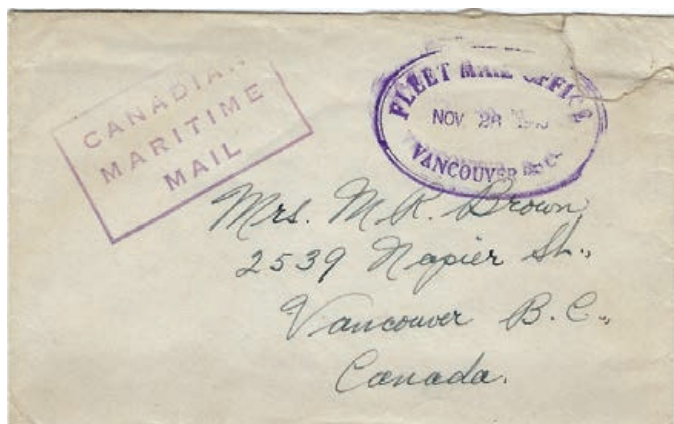 CANADIAN
MARITIME
MAIL
FLEET MAIL OFFICE
NOV 28
VANCOUVER B.C.
Mrs. M.R. Brown,
2539 Napier St.,
Vancouver B.C.,
Canada.